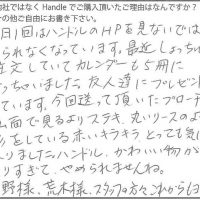 社ではなく Handle でご購入頂いた理由はなんですか？
の他ご自由にお書き下さい。
日1回はハンドルのHPを見ないでは
られなくなっています。最近しょっちゅ
注文していてカレンダーも5冊に
っちゃいました。友人達にプレゼン
ています。今回送って頂いたブローチ
画面で見るよりステキ、丸いリースのよ
をしている赤いキラキラとっても気に
りました。ハンドル、かわいい物が
りすぎて、やめられませんね。
野様、荒木様、スタッフの方々これからもヨ